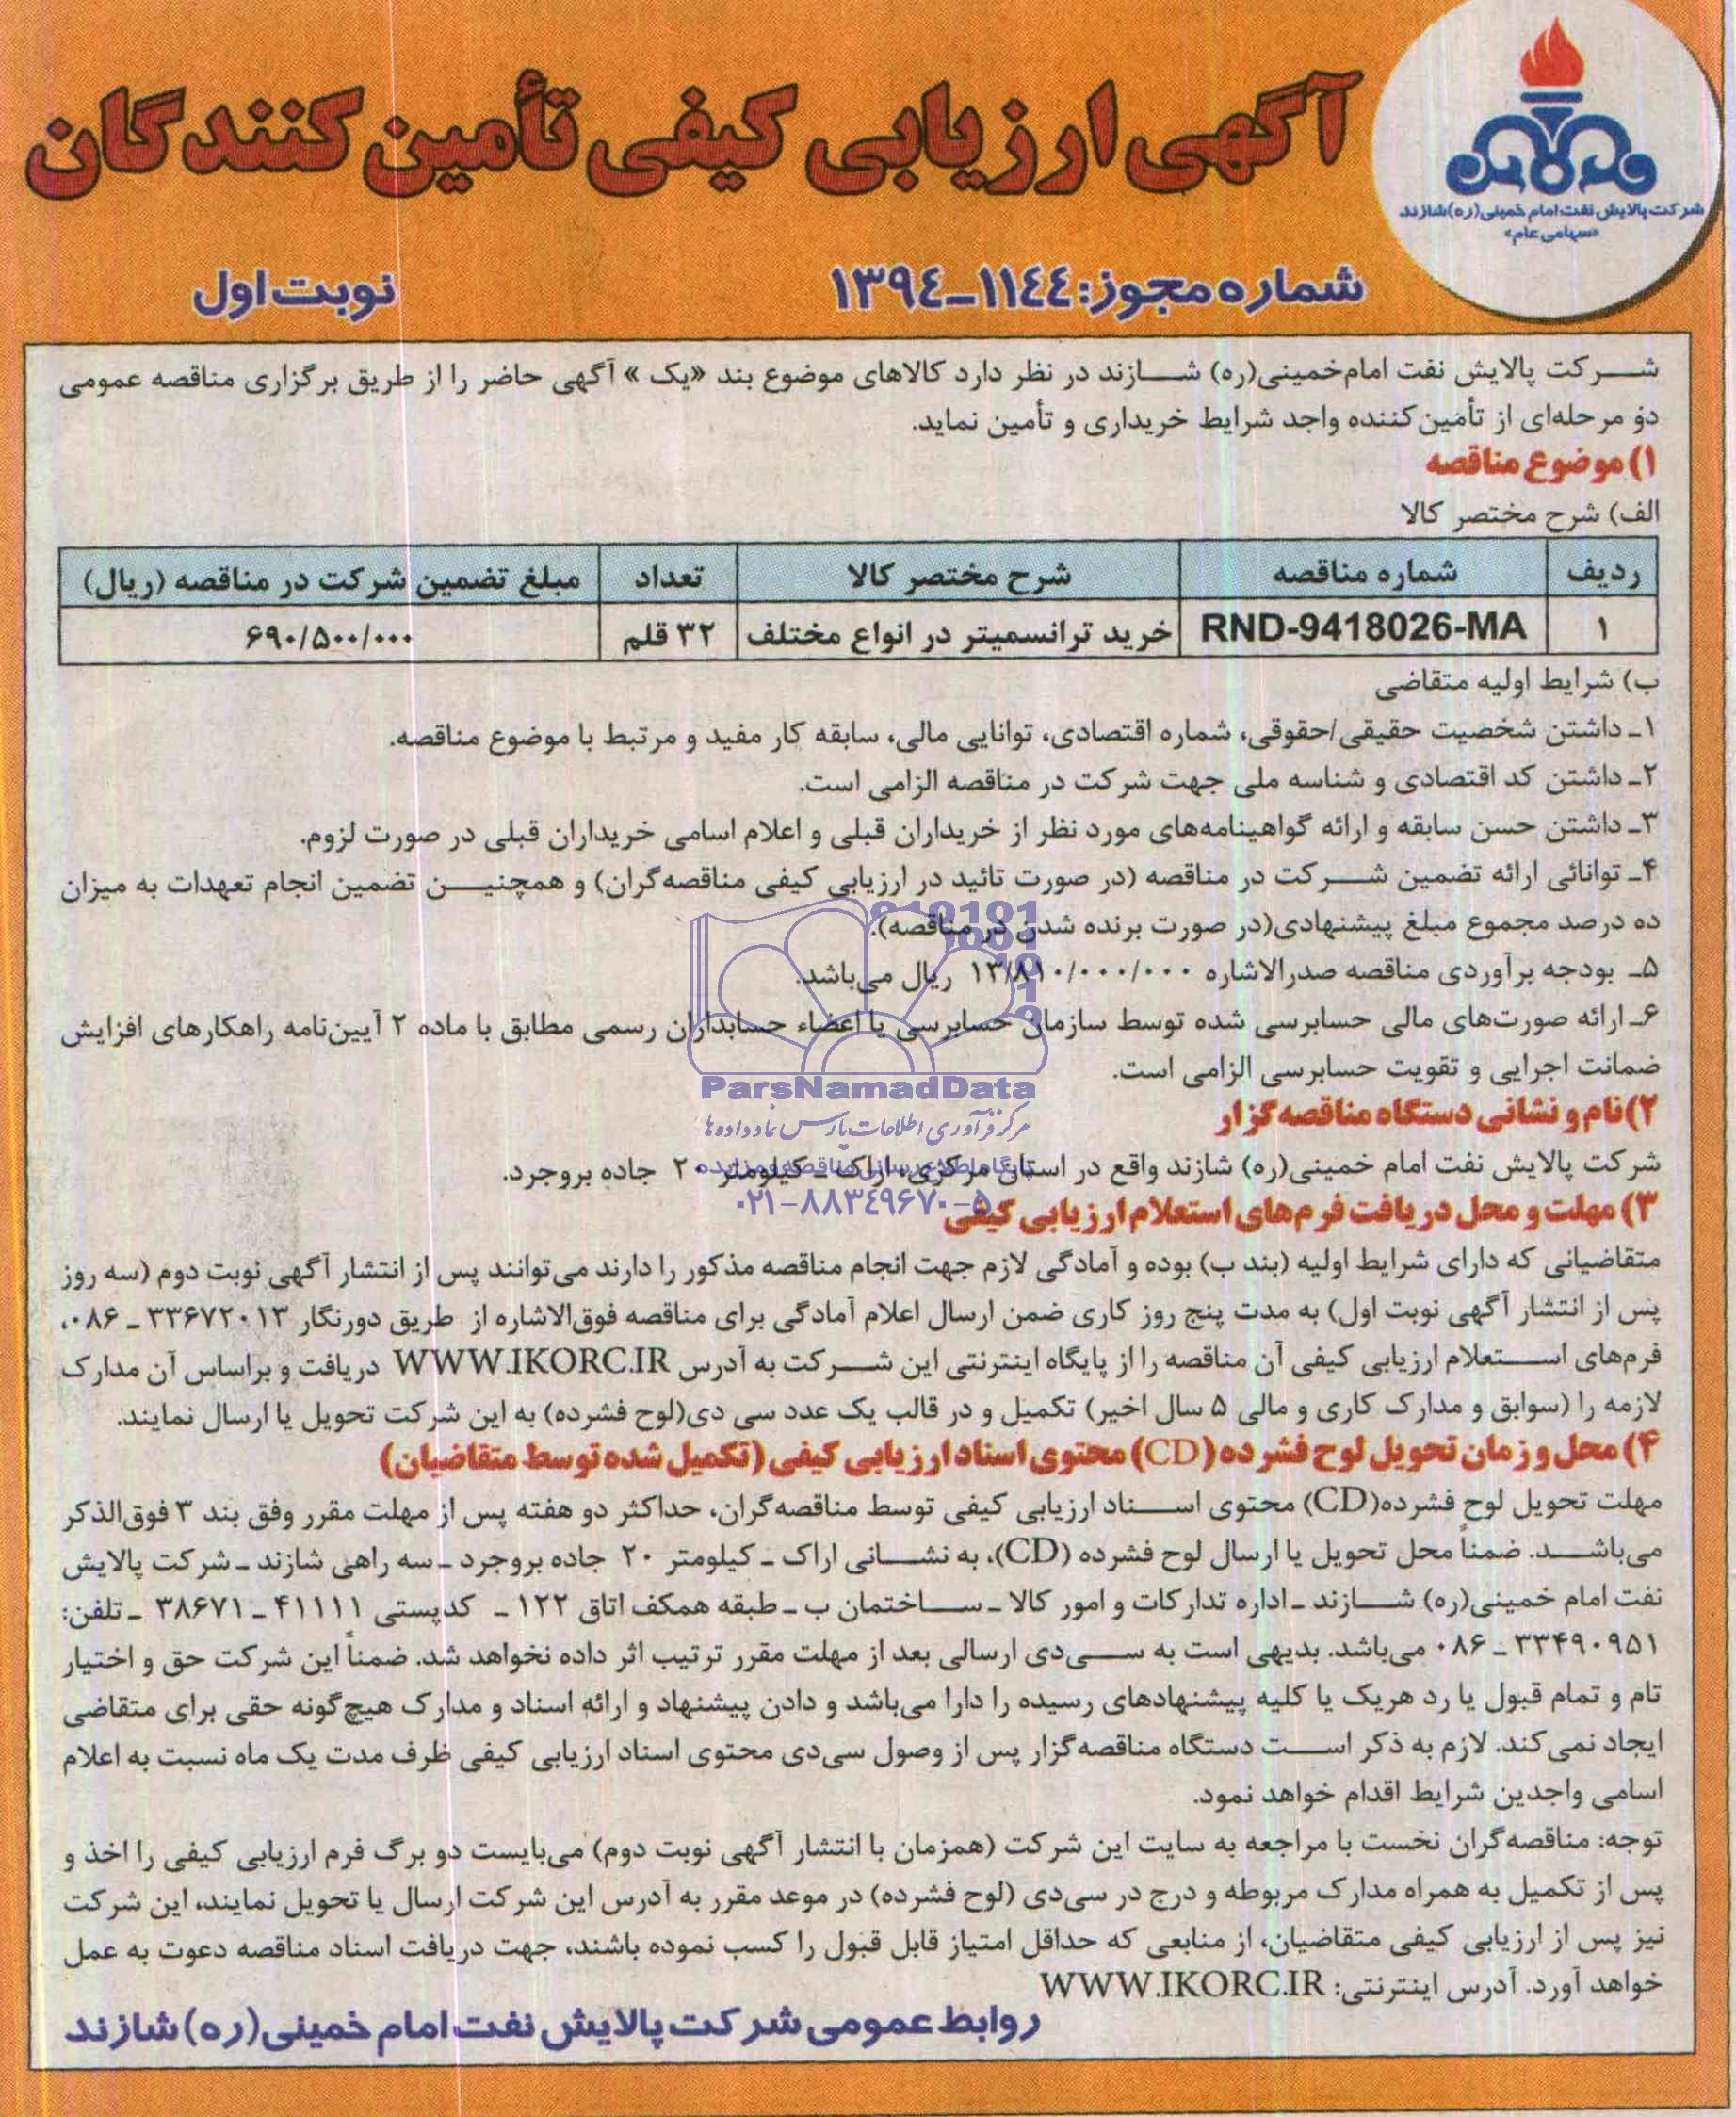 شرکت پالایش نفت امام خمینی(ره)شازند
«سهامی عام»
آگهی ارزیابی کیفی تأمین کنندگان
شماره مجوز: ۱۱۴۴-۱۳۹۴
نوبت اول
شرکت پالایش نفت امام‌خمینی(ره) شازند در نظر دارد کالاهای موضوع بند «یک» آگهی حاضر را از طریق برگزاری مناقصه عمومی
دو مرحله‌ای از تأمین‌کننده واجد شرایط خریداری و تأمین نماید.
۱) موضوع مناقصه
الف) شرح مختصر کالا
ردیف | شماره مناقصه | شرح مختصر کالا | تعداد | مبلغ تضمین شرکت در مناقصه (ریال)
۱ | RND-9418026-MA | خرید ترانسمیتر در انواع مختلف | ۳۲ قلم | ۶۹۰/۵۰۰/۰۰۰
ب) شرایط اولیه متقاضی
۱ـ داشتن شخصیت حقیقی/حقوقی، شماره اقتصادی، توانایی مالی، سابقه کار مفید و مرتبط با موضوع مناقصه.
۲ـ داشتن کد اقتصادی و شناسه ملی جهت شرکت در مناقصه الزامی است.
۳ـ داشتن حسن سابقه و ارائه گواهینامه‌های مورد نظر از خریداران قبلی و اعلام اسامی خریداران قبلی در صورت لزوم.
۴ـ توانائی ارائه تضمین شرکت در مناقصه (در صورت تائید در ارزیابی کیفی مناقصه‌گران) و همچنین تضمین انجام تعهدات به میزان
ده درصد مجموع مبلغ پیشنهادی(در صورت برنده شدن در مناقصه).
۵ـ بودجه برآوردی مناقصه صدرالاشاره ۱۳/۸۱۰/۰۰۰/۰۰۰ ریال می‌باشد.
۶ـ ارائه صورت‌های مالی حسابرسی شده توسط سازمان حسابرسی یا اعضاء حسابداران رسمی مطابق با ماده ۲ آیین‌نامه راهکارهای افزایش
ضمانت اجرایی و تقویت حسابرسی الزامی است.
ParsNamadData
مرکز فرآوری اطلاعات پارس نماد داده‌ها
پایگاه اطلاع رسانی مناقصه و مزایده
۰۲۱-۸۸۳۴۹۶۷۰-۵
۲)نام و نشانی دستگاه مناقصه‌گزار
شرکت پالایش نفت امام خمینی(ره) شازند واقع در استان مرکزی، اراک ـ کیلومتر ۲۰ جاده بروجرد.
۳) مهلت و محل دریافت فرم‌های استعلام ارزیابی کیفی
متقاضیانی که دارای شرایط اولیه (بند ب) بوده و آمادگی لازم جهت انجام مناقصه مذکور را دارند می‌توانند پس از انتشار آگهی نوبت دوم (سه روز
پس از انتشار آگهی نوبت اول) به مدت پنج روز کاری ضمن ارسال اعلام آمادگی برای مناقصه فوق‌الاشاره از طریق دورنگار ۳۳۶۷۲۰۱۳ ـ ۰۸۶،
فرم‌های استعلام ارزیابی کیفی آن مناقصه را از پایگاه اینترنتی این شرکت به آدرس WWW.IKORC.IR دریافت و براساس آن مدارک
لازمه را (سوابق و مدارک کاری و مالی ۵ سال اخیر) تکمیل و در قالب یک عدد سی دی(لوح فشرده) به این شرکت تحویل یا ارسال نمایند.
۴) محل و زمان تحویل لوح فشرده (CD) محتوی اسناد ارزیابی کیفی (تکمیل شده توسط متقاضیان)
مهلت تحویل لوح فشرده(CD) محتوی اسناد ارزیابی کیفی توسط مناقصه‌گران، حداکثر دو هفته پس از مهلت مقرر وفق بند ۳ فوق‌الذکر
می‌باشد. ضمناً محل تحویل یا ارسال لوح فشرده (CD)، به نشانی اراک ـ کیلومتر ۲۰ جاده بروجرد ـ سه راهی شازند ـ شرکت پالایش
نفت امام خمینی(ره) شازند ـ اداره تدارکات و امور کالا ـ ساختمان ب ـ طبقه همکف اتاق ۱۲۲ ـ کدپستی ۴۱۱۱۱ ـ ۳۸۶۷۱ ـ تلفن:
۳۳۴۹۰۹۵۱ ـ ۰۸۶ می‌باشد. بدیهی است به سی‌دی ارسالی بعد از مهلت مقرر ترتیب اثر داده نخواهد شد. ضمناً این شرکت حق و اختیار
تام و تمام قبول یا رد هریک یا کلیه پیشنهادهای رسیده را دارا می‌باشد و دادن پیشنهاد و ارائه اسناد و مدارک هیچ‌گونه حقی برای متقاضی
ایجاد نمی‌کند. لازم به ذکر است دستگاه مناقصه‌گزار پس از وصول سی‌دی محتوی اسناد ارزیابی کیفی ظرف مدت یک ماه نسبت به اعلام
اسامی واجدین شرایط اقدام خواهد نمود.
توجه: مناقصه‌گران نخست با مراجعه به سایت این شرکت (همزمان با انتشار آگهی نوبت دوم) می‌بایست دو برگ فرم ارزیابی کیفی را اخذ و
پس از تکمیل به همراه مدارک مربوطه و درج در سی‌دی (لوح فشرده) در موعد مقرر به آدرس این شرکت ارسال یا تحویل نمایند، این شرکت
نیز پس از ارزیابی کیفی متقاضیان، از منابعی که حداقل امتیاز قابل قبول را کسب نموده باشند، جهت دریافت اسناد مناقصه دعوت به عمل
خواهد آورد. آدرس اینترنتی: WWW.IKORC.IR
روابط عمومی شرکت پالایش نفت امام خمینی(ره) شازند